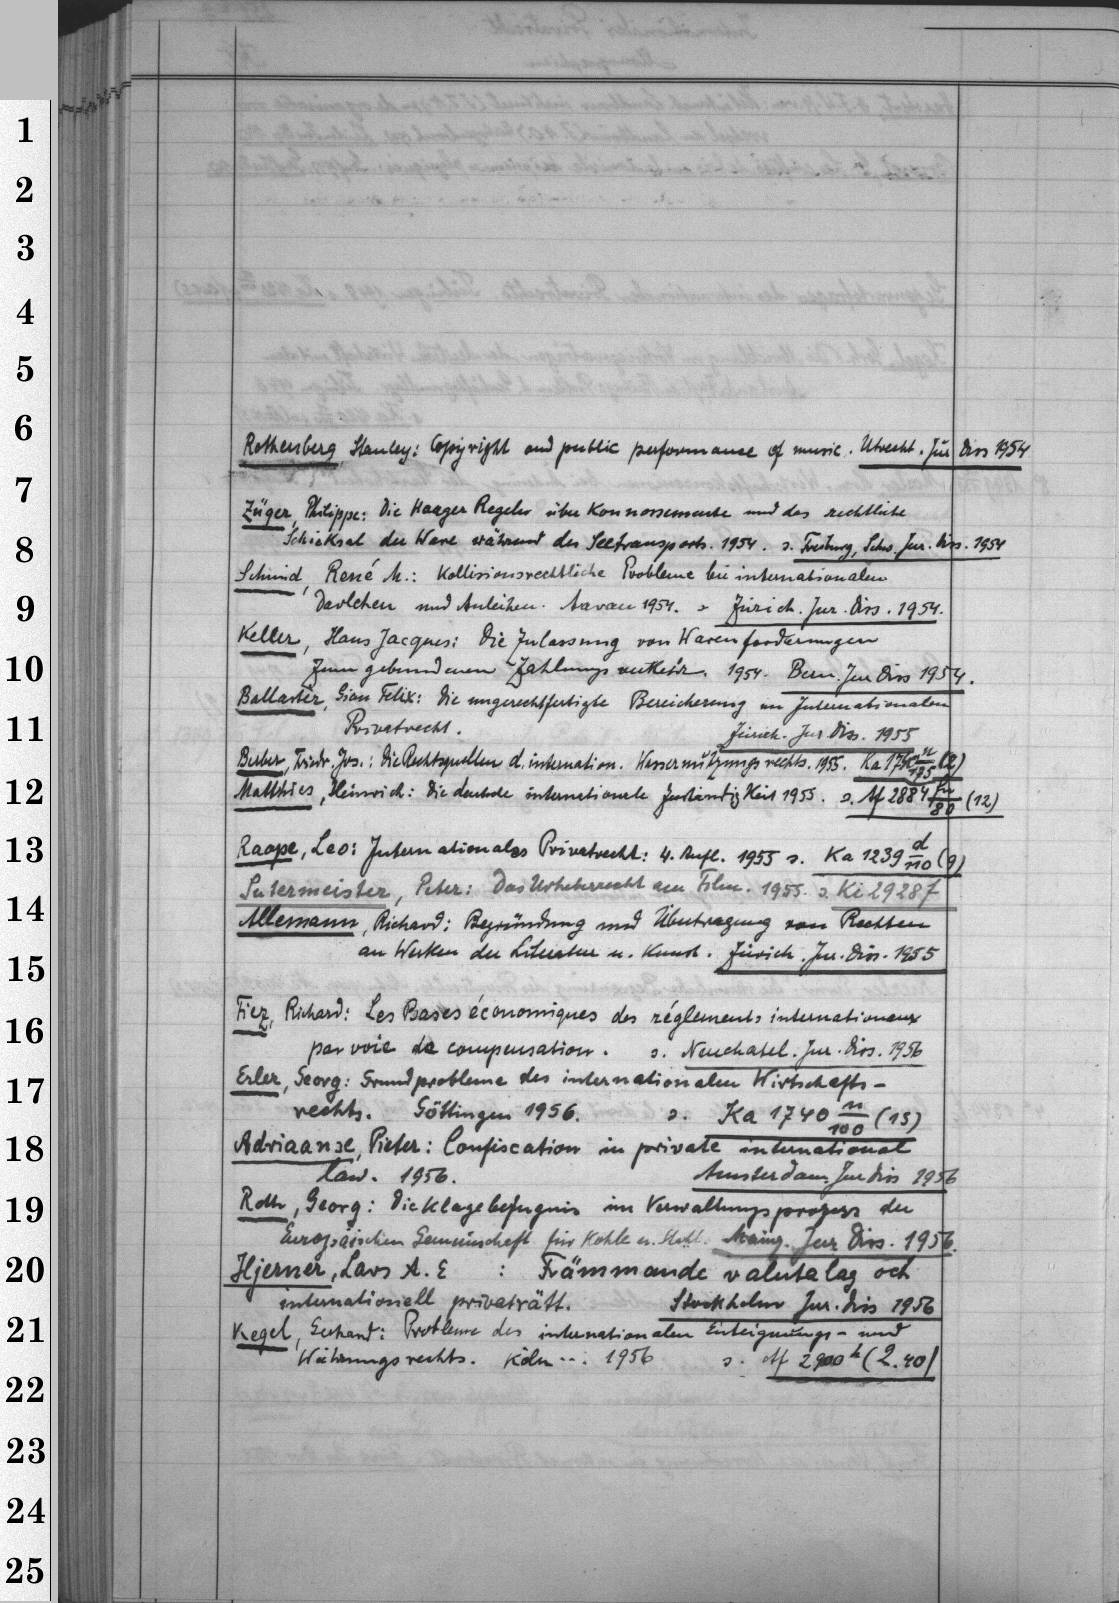 1
2
3
4
5
6
Rothenberg, Stanley: Copyright and public performance of music. Utrecht. Jur Diss 1954
7
Züger, Philippe: Die Haager Regeln über Konnossemente und das rechtliche
8
Schicksal der Ware während des Seetransports. 1954. s. Freiburg, Schw. Jur. Diss. 1954
Schmid, René M.: Kollisionsrechtliche Probleme bei internationalen
9
Darlehen und Anleihen. Aarau 1954. s Zürich. Jur. Diss. 1954.
Keller, Hans Jacques: Die Zulassung von Warenforderungen
10
zum gebundenen Zahlungsverkehr. 1954. Bern. Jur Diss 1954.
Ballarièr, Gian Felix: Die ungerechtfertigte Bereicherung im Internationalen
11
Privatrecht. Zürich. Jur. Diss. 1955
Berber, Friedr. Jos.: Die Rechtsquellen d. internation. Wassernutzungsrechts. 1955. Ka 1740 n/125 (2)
12
Matthies, Heinrich: Die deutsche internationale Zuständigkeit 1955. s. Af 2884 fn/80 (12)
13
Raape, Leo: Internationales Privatrecht: 4. Aufl. 1955 s. Ka 1239 d/110 (9)
Sutermeister, Peter: Das Urheberrecht am Film. 1955. s. Ki 2928 f
14
Allemann, Richard: Begründung und Übertragung von Rechten
15
an Werken der Literatur u. Kunst. Zürich. Jur. Diss. 1955
Fiez, Richard: Les Bases économiques des réglements internationaux
16
par voie de compensation. s. Neuchatel. Jur. Diss. 1956
17
Erler, Georg: Grundprobleme des internationalen Wirtschafts-
rechts. Göttingen 1956. s. Ka 1740 n/100 (15)
18
Adriaanse, Pieter: Confiscation in private international
law. 1956. Amsterdam, Jur Diss 1956
19
Roth, Georg: Die Klagebefugnis im Verwaltungsprozess der
Europäischen Gemeinschaft für Kohle u. Stahl. Mainz. Jur Diss. 1956.
20
Hjerner, Lars A. E : Främmande valutalag och
internationell privaträtt. Stockholm Jur. Diss 1956
21
Kegel, Gerhard: Probleme des internationalen Enteignungs- und
Währungsrechts. Köln... 1956 s. Af 2900 h (2.40)
22
23
24
25